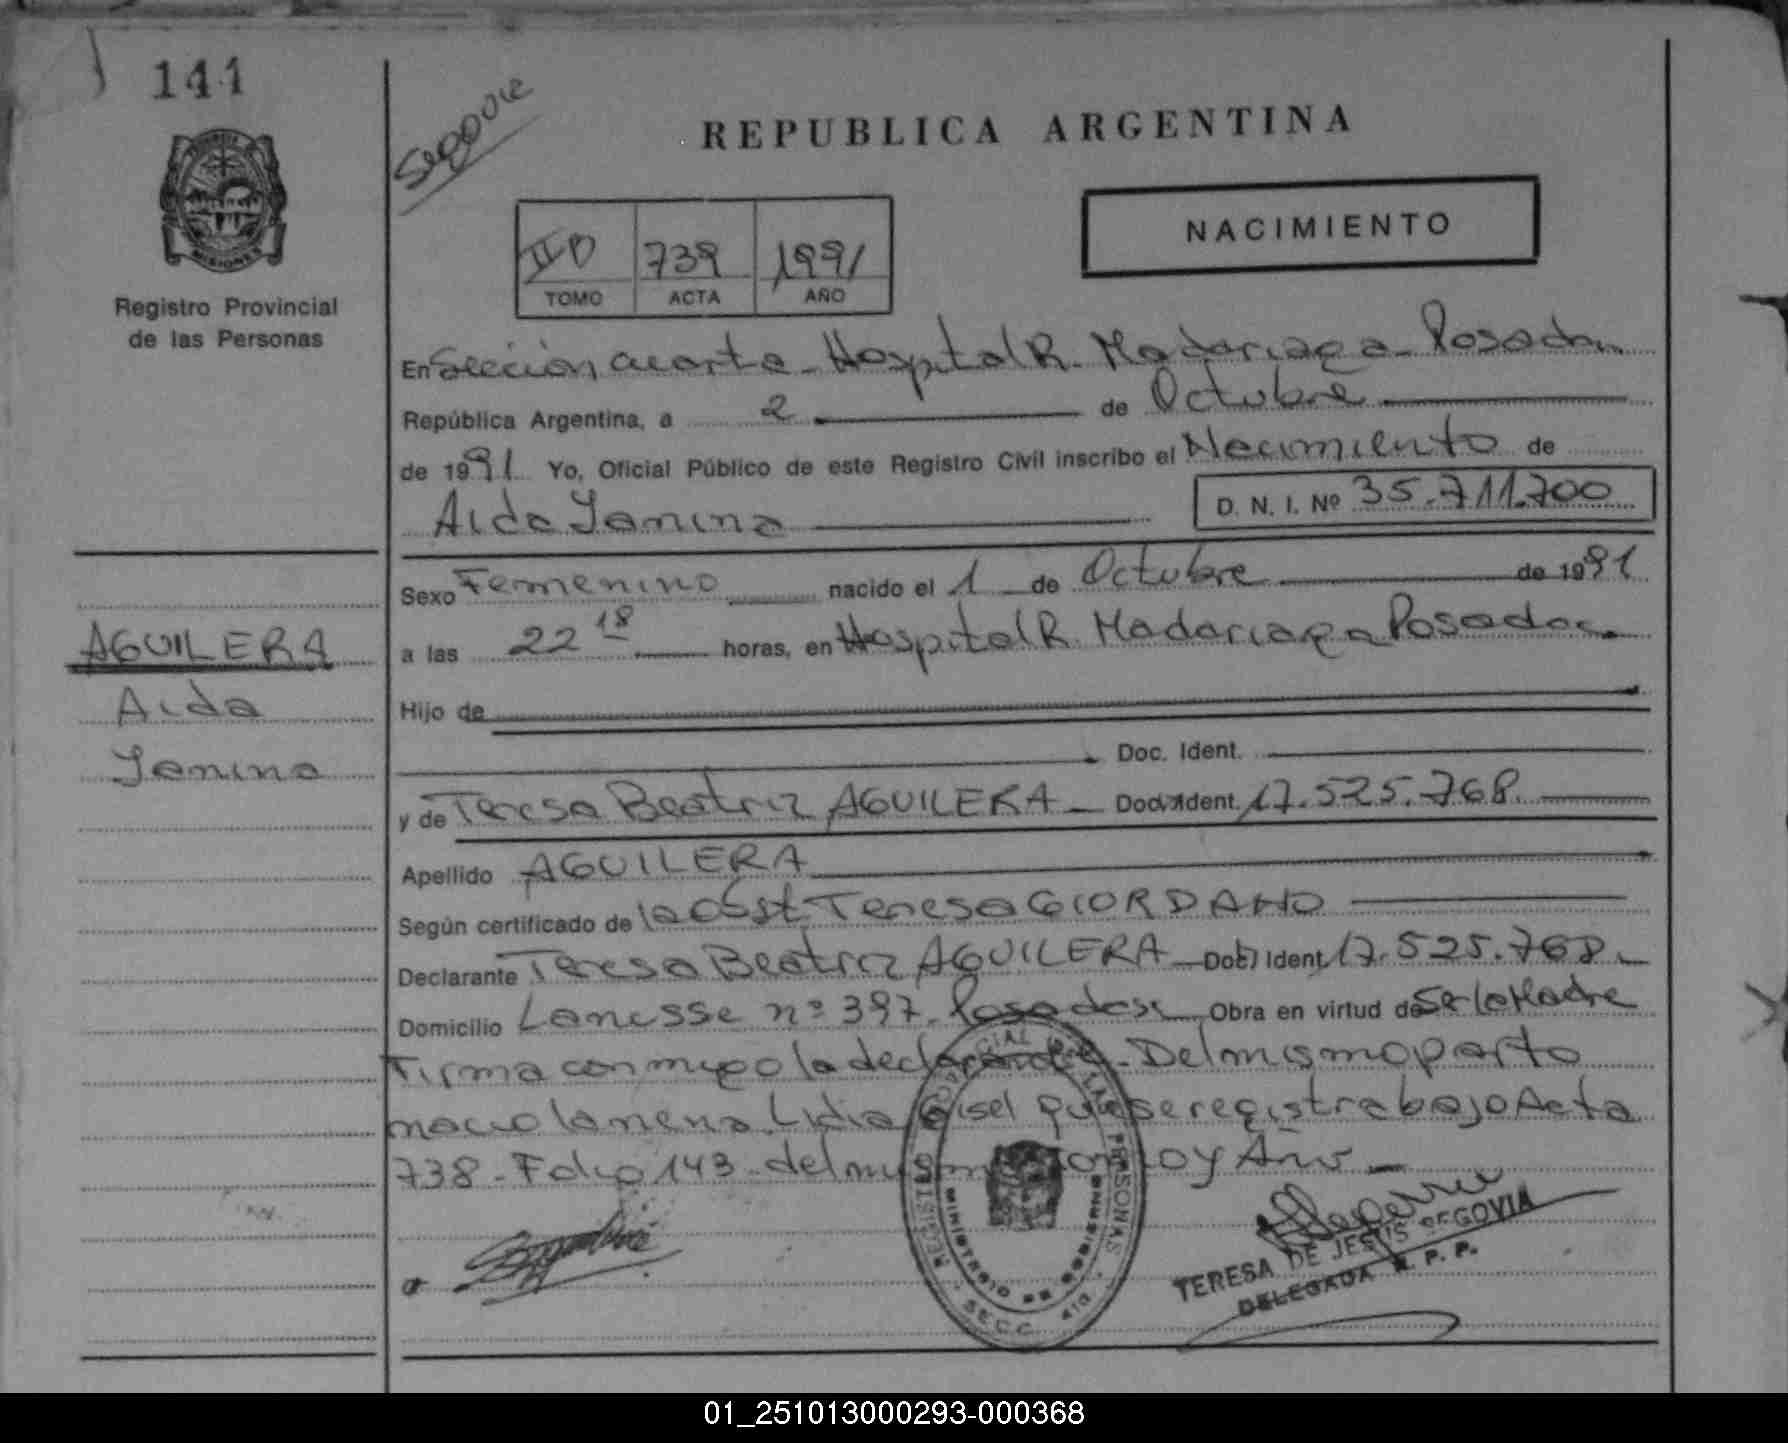 141
Segovia
REPUBLICA ARGENTINA
MISIONES
Registro Provincial
de las Personas
II D 739 1991
TOMO ACTA AÑO
NACIMIENTO
En Sección cuarta - Hospital R. Madariaga - Posadas
República Argentina, a 2 de Octubre
de 1991 Yo, Oficial Público de este Registro Civil inscribo el Nacimiento de
Aida Yanina D. N. I. Nº 35.711.700
Sexo Femenino nacido el 1 de Octubre de 1991
a las 22 18 horas, en Hospital R. Madariaga Posadas
Hijo de
Doc. Ident.
y de Teresa Beatriz AGUILERA - Doc. Ident. 17.525.768
Apellido AGUILERA
Según certificado de la Obst. Teresa GIORDANO
Declarante Teresa Beatriz AGUILERA - Doc. Ident. 17.525.768 -
Domicilio Lanusse nº 397 - Posadas Obra en virtud de Ser la Madre
Firma conmigo la declarante - Del mismo parto
nacio la nena Lidia Gisel que se registra bajo Acta
738 - Folio 143 - del mismo Tomo y Año -
AGUILERA
Aida
Yanina
REGISTRO PROVINCIAL DE LAS PERSONAS
MINISTERIO DE GOBIERNO
SECC. 4ta.
TERESA DE JESUS SEGOVIA
DELEGADA R. P. P.
01_251013000293-000368